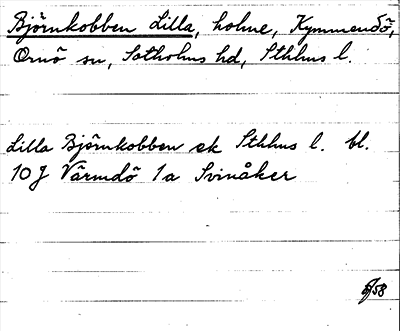 Björnkobben Lilla, holme, Kymmendö,
Ornö sn, Sotholms hd, Sthlms l.
Lilla Björnkobben ek Sthlms l. bl.
10J Värmdö 1a Svinåker